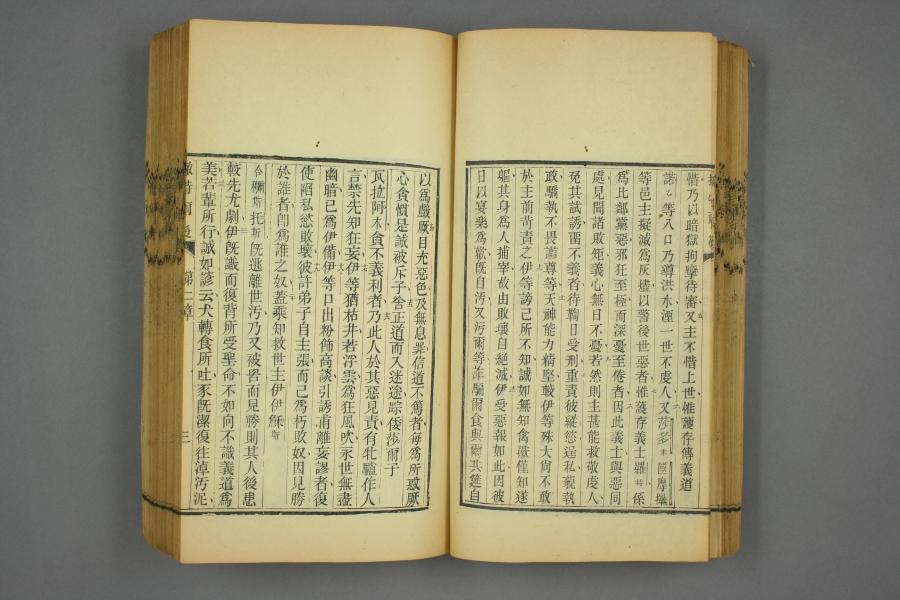 惜乃以暗獄拘孿待審又主不惜上世惟護存傳義道
諾乀等八口乃導洪水湮一世不虔人又莎多木與摩𤨏
等邑主擬滅為灰燼以警後世惡者惟護存義士羅特係
為比鄰黨惡邪狂至極而深憂至倦者因此義士與惡同
處見聞諸敗矩義心無日不憂若然則主甚能救敬虔人
免其試誘畱不義者待鞫日受刑重責彼縱慾逞私藐執
政驕執不畏謗尊等天神能力精堅載伊等殊大尚不敢
於主前苛責之伊等謗己所不知誠如無知禽獸僅知遂
軀其身為人捕宰故由敗壞自絕滅伊受惡報如此因彼
日以宴樂為歡旣自汚又汚爾等詐騙爾食與爾共筵自
以為戲厥目充惡色及無息罪信道不篤者每為所惑厥
心貪慣是誠被斥子舍正道而入迷途踪倭莎爾子
瓦拉阿木貪不義利者乃此人於其惡見責有牝驢作人
言禁先知狂妄伊等猶枯井若浮雲為狂風吹永世無盡
幽暗已為伊備伊等口出粉飾高談引誘甫離妄謬者復
使陷私慾敗壞彼許弟子自主張而己為朽敗奴因見勝
於誰者卽為誰之奴蓋乘知救世主伊伊穌斯
合𣟴斯托斯旣逃離世汚乃又被罟而見勝則其人後患
較先尤劇伊旣識而復背所受聖命不如向不識義道為
美若輩所行誠如諺云犬轉食所吐豕旣潔復往淖汚泥
第二章
三